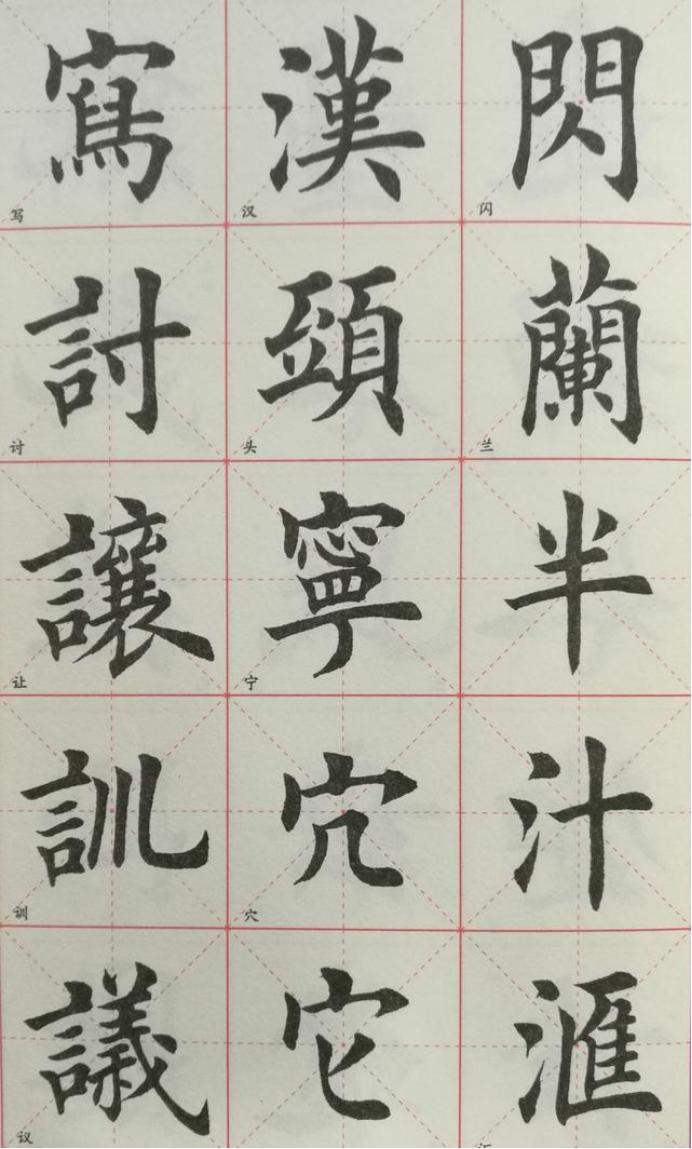 閃 闪 蘭 兰 半 汁 滙
漢 汉 頭 头 寧 宁 穴 穴 它
寫 写 討 讨 讓 让 訓 训 議 议